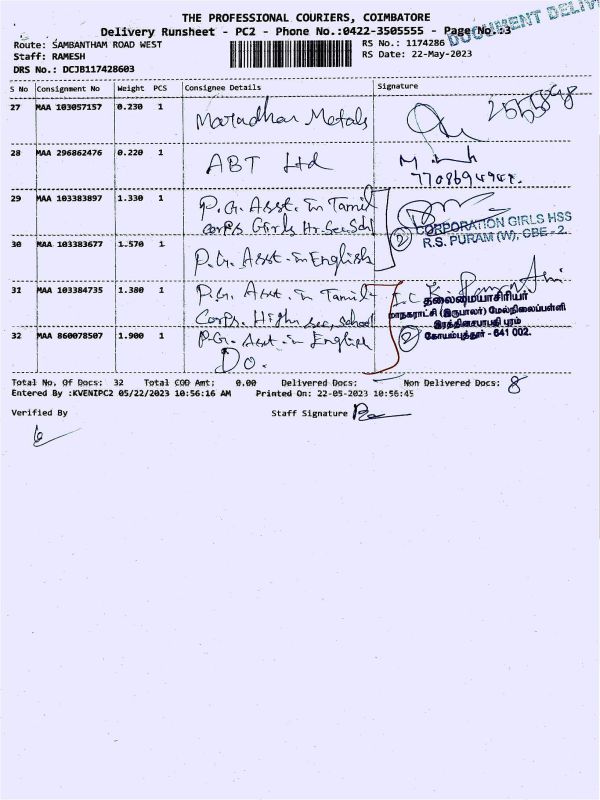 THE PROFESSIONAL COURIERS, COIMBATORE
Delivery Runsheet - PC2 - Phone No.:0422-3505555 - Page No.:3
DOCUMENT DELIV
Route: SAMBANTHAM ROAD WEST
RS No.: 1174286
Staff: RAMESH
RS Date: 22-May-2023
DRS No.: DCJB117428603
S No Consignment No Weight PCS Consignee Details Signature
27 MAA 103057157 0.230 1 Metals
28 MAA 296862476 0.220 1 ABT Ltd
29 MAA 103383897 1.330 1 P.G. Asst. in Tamil
Corps Girls Hr. Sec. Schl
CORPORATION GIRLS HSS
R.S. PURAM (W), CBE - 2.
30 MAA 103383677 1.570 1 P.G. Asst. in English
31 MAA 103384735 1.380 1 P.G. Asst. in Tamil
Corps. High Sec, School
தலைமையாசிரியர்
மாநகராட்சி (இருபாலர்) மேல்நிலைப்பள்ளி
இரத்தினசபாபதி புரம்
கோயம்புத்தூர் - 641 002.
32 MAA 860078507 1.900 1 P.G. Asst. in English
Do.
Total No. Of Docs: 32 Total COD Amt: 0.00 Delivered Docs: Non Delivered Docs: 8
Entered By :KVENIPC2 05/22/2023 10:56:16 AM Printed On: 22-05-2023 10:56:45
Verified By Staff Signature